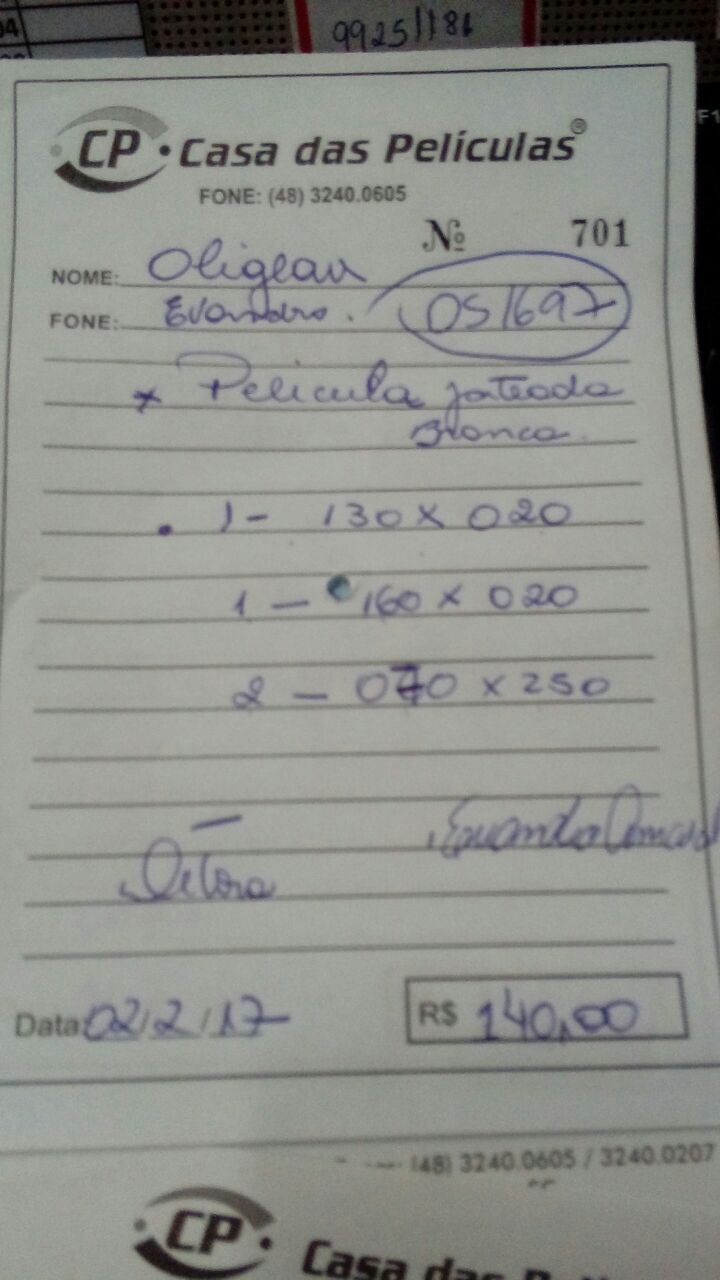 04
99251186
F1
CP Casa das Películas®
FONE: (48) 3240.0605
Nº 701
NOME: Oligeau
FONE: Evandro. OS 1697
* Pelicula jateada
Branca.
. 1 - 130 x 020
1 - 160 x 020
2 - 070 x 250
Debora
Data 02/2/17 R$ 140,00
(48) 3240.0605 / 3240.0207
CP Casa das